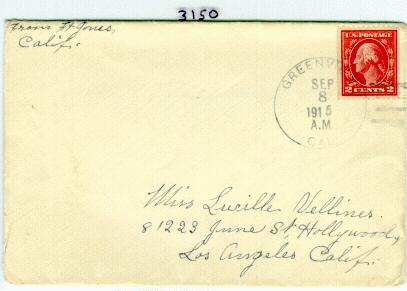 3150
From H Jones,
Calif.
U.S. POSTAGE
2 CENTS 2
GREENV
SEP
8
1915
A.M.
CAL
Miss Lucille Vellines.
81223 June St Hollywood,
Los Angeles Calif.